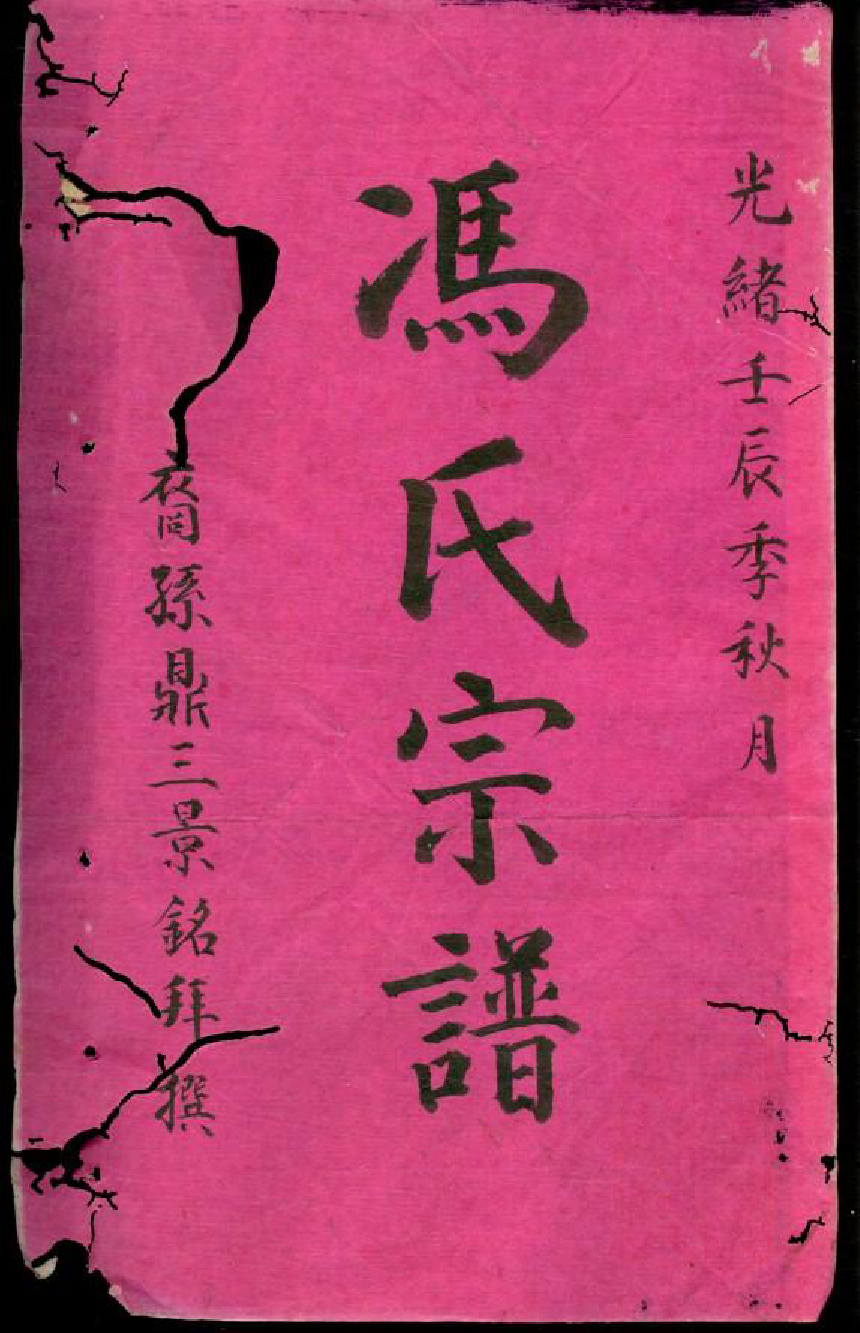 光緒壬辰季秋月
馮氏宗譜
裔孫鼎三景銘拜撰